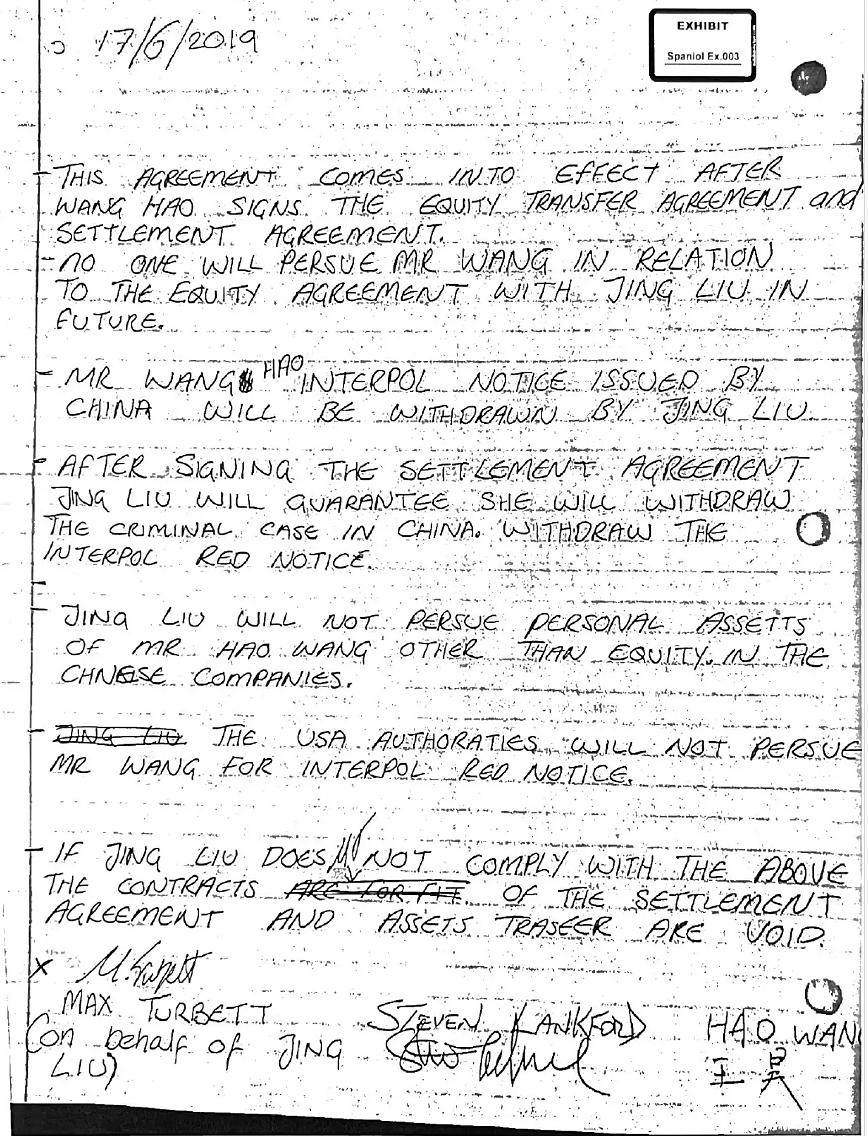 17/6/2019
EXHIBIT
Spaniol Ex.003
- THIS AGREEMENT COMES INTO EFFECT AFTER
WANG HAO SIGNS THE EQUITY TRANSFER AGREEMENT and
SETTLEMENT AGREEMENT.
- NO ONE WILL PERSUE MR WANG IN RELATION
TO THE EQUITY AGREEMENT WITH JING LIU IN
FUTURE.
- MR WANG HAO INTERPOL NOTICE ISSUED BY
CHINA WILL BE WITHDRAWN BY JING LIU
- AFTER SIGNING THE SETTLEMENT AGREEMENT
JING LIU WILL GUARANTEE SHE WILL WITHDRAW
THE CRIMINAL CASE IN CHINA. WITHDRAW THE
INTERPOL RED NOTICE.
-
- JING LIU WILL NOT PERSUE PERSONAL ASSETTS
OF MR HAO WANG OTHER THAN EQUITY. IN THE
CHNESE COMPANIES.
- JING LIU THE USA AUTHORATIES WILL NOT PERSUE
MR WANG FOR INTERPOL RED NOTICE.
- IF JING LIU DOES NOT COMPLY WITH THE ABOVE
THE CONTRACTS ARE FOR OF THE SETTLEMENT
AGREEMENT AND ASSETS TRASFER ARE VOID.
X M. Turbett
MAX TURBETT STEVEN LANKFORD HAO WAN
(on behalf of JING 王昊
LIU)